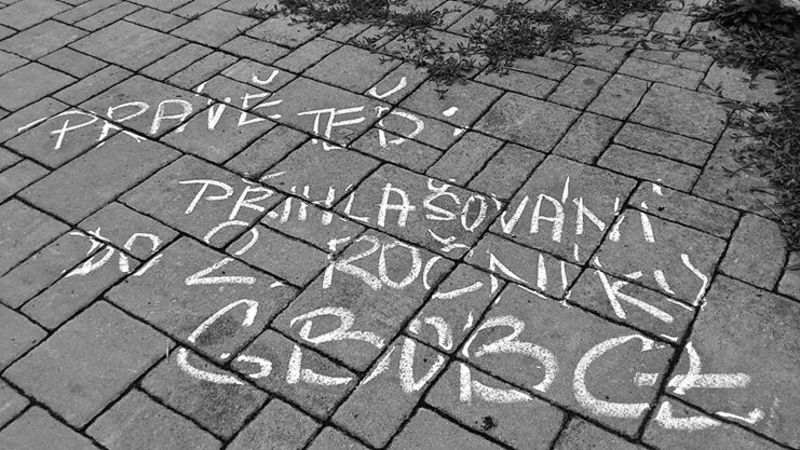 PRÁVĚ TEĎ:
PŘIHLAŠOVÁNÍ
DO 2. ROČNÍKU